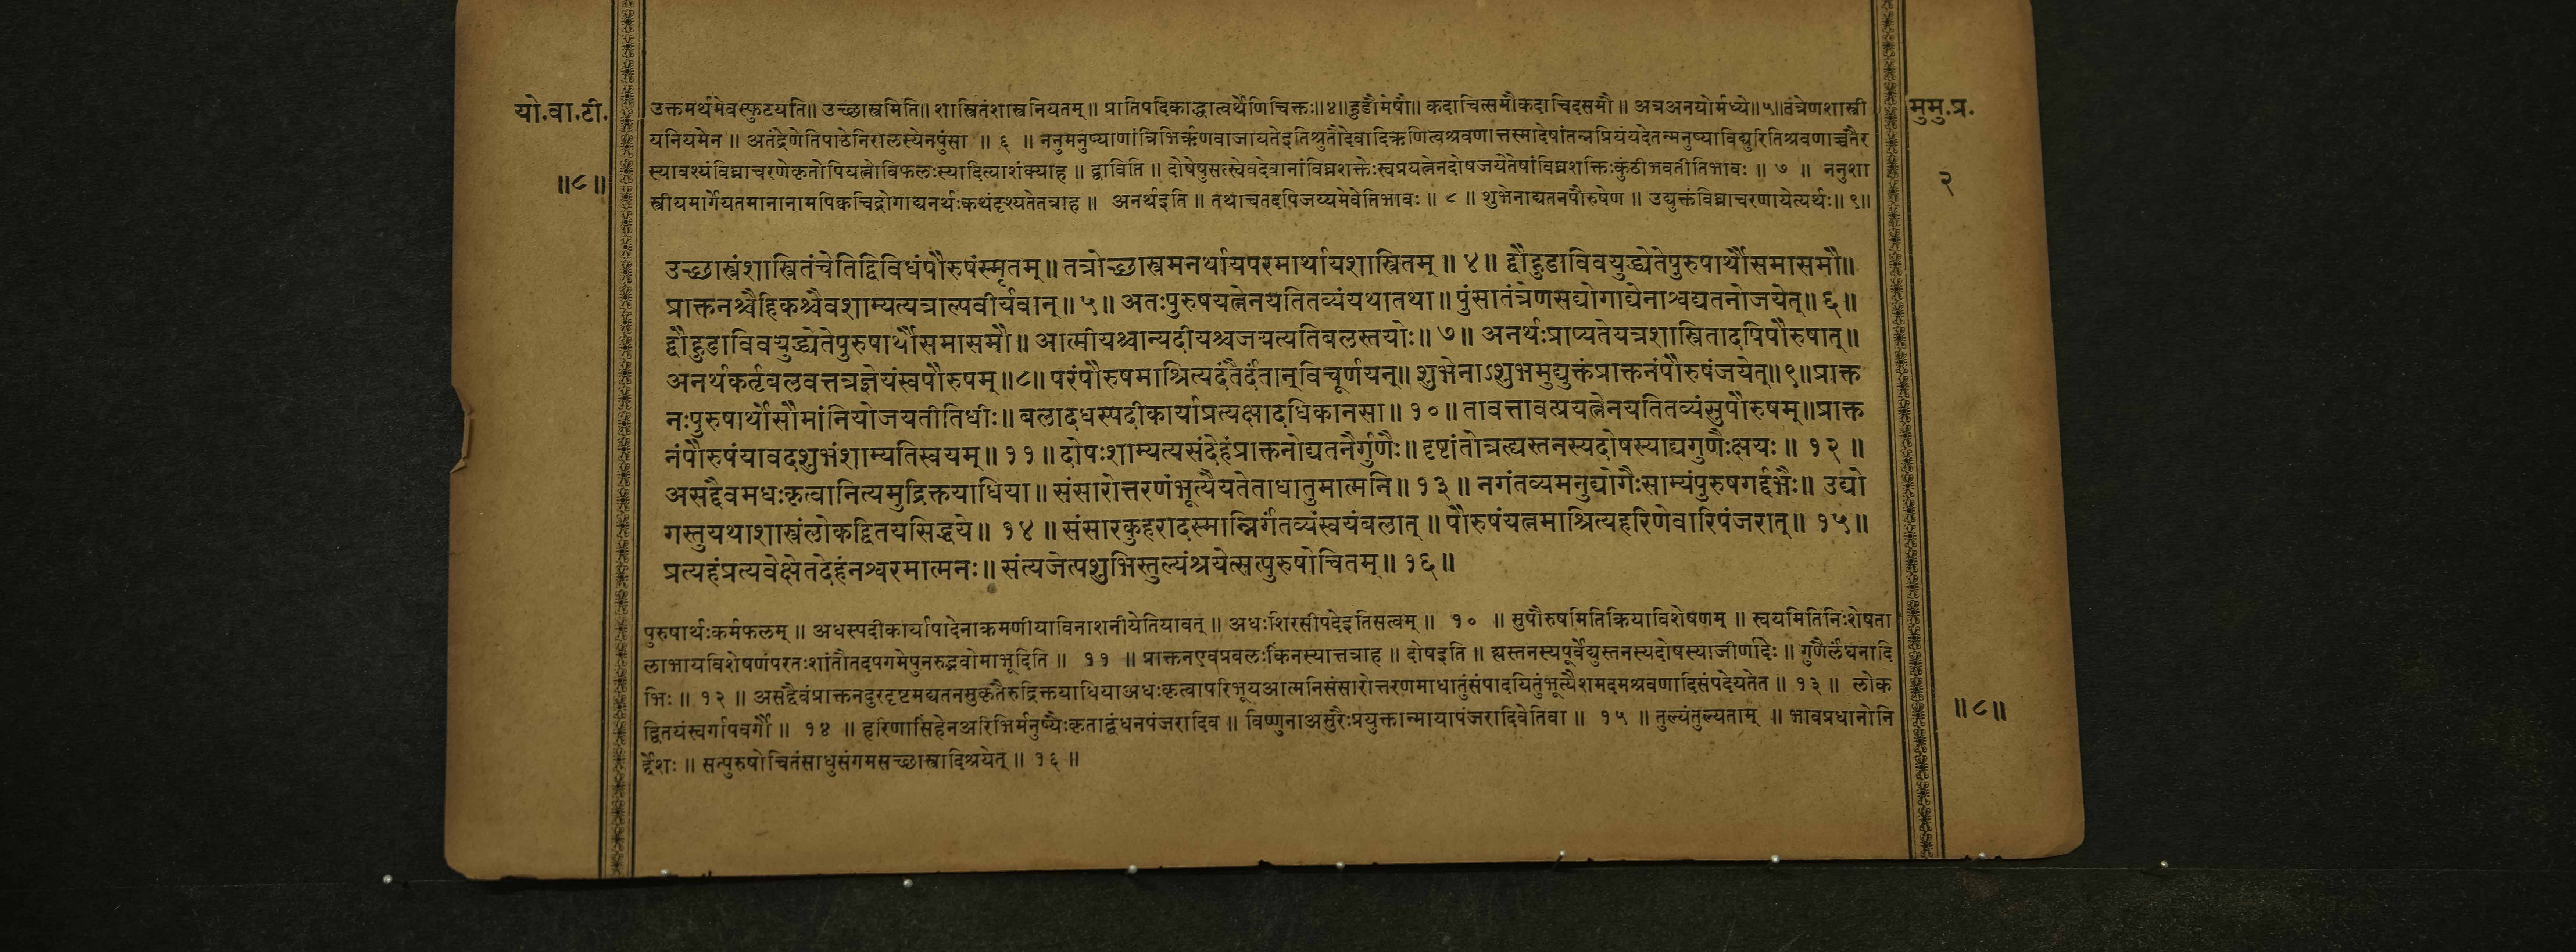 यो.वा.टी.
॥८॥
उक्तमर्थमेवस्फुटयति॥ उच्छास्त्रमिति॥ शास्त्रितंशास्त्रनियतम्॥ प्रातिपदिकाद्धात्वर्थेणिचिक्तः॥४॥हुडौमेषौ॥ कदाचित्समौकदाचिदसमौ॥ अत्रअनयोर्मध्ये॥५॥तंत्रेणशास्त्री
यनियमेन॥ अतंद्रेणेतिपाठेनिरालस्येनपुंसा॥ ६॥ ननुमनुष्याणांत्रिभिर्ऋणवाजायतेइतिश्रुतौदेवादिऋणित्वश्रवणात्तस्मादेषांतन्नप्रियंयदेतन्मनुष्याविद्युरितिश्रवणाच्चतैर
स्यावश्यंविघ्नाचरणेकृतोपियत्नोविफलःस्यादित्याशंक्याह॥ द्वाविति॥ दोषेषुसत्स्वेवदेवानांविघ्नशक्तेःस्वप्रयत्नेनदोषजयेतेषांविघ्नशक्तिःकुंठीभवतीतिभावः॥ ७॥ ननुशा
स्त्रीयमार्गेयतमानानामपिक्वचिद्रोगाद्यनर्थःकथंदृश्यतेतत्राह॥ अनर्थइति॥ तथाचतदपिजय्यमेवेतिभावः॥ ८॥ शुभेनाद्यतनपौरुषेण॥ उद्युक्तंविघ्नाचरणायेत्यर्थः॥९॥
मुमु.प्र.
२
उच्छास्त्रंशास्त्रितंचेतिद्विविधंपौरुषंस्मृतम्॥ तत्रोच्छास्त्रमनर्थायपरमार्थायशास्त्रितम्॥ ४॥ द्वौहुडाविवयुद्ध्येतेपुरुषार्थौसमासमौ॥
प्राक्तनश्चैहिकश्चैवशाम्यत्यत्राल्पवीर्यवान्॥ ५॥ अतःपुरुषयत्नेनयतितव्यंयथातथा॥ पुंसातंत्रेणसद्योगाद्येनाश्वद्यतनोजयेत्॥ ६॥
द्वौहुडाविवयुद्ध्येतेपुरुषार्थौसमासमौ॥ आत्मीयश्चान्यदीयश्चजयत्यतिबलस्तयोः॥ ७॥ अनर्थःप्राप्यतेयत्रशास्त्रितादपिपौरुषात्॥
अनर्थकर्तृबलवत्तत्रज्ञेयंस्वपौरुषम्॥८॥ परंपौरुषमाश्रित्यदंतैर्दंतान्विचूर्णयन्॥ शुभेनाऽशुभमुद्युक्तंप्राक्तनंपौरुषंजयेत्॥९॥प्राक्त
नःपुरुषार्थोसौमांनियोजयतीतिधीः॥ बलादधस्पदीकार्याप्रत्यक्षादधिकानसा॥ १०॥ तावत्तावत्प्रयत्नेनयतितव्यंसुपौरुषम्॥प्राक्त
नंपौरुषंयावदशुभंशाम्यतिस्वयम्॥ ११॥ दोषःशाम्यत्यसंदेहंप्राक्तनोद्यतनैर्गुणैः॥ दृष्टांतोत्रह्यस्तनस्यदोषस्याद्यगुणैःक्षयः॥ १२॥
असद्दैवमधःकृत्वानित्यमुद्रिक्तयाधिया॥ संसारोत्तरणंभूत्यैयतेताधातुमात्मनि॥ १३॥ नगंतव्यमनुद्योगैःसाम्यंपुरुषगर्द्दभैः॥ उद्यो
गस्तुयथाशास्त्रंलोकद्वितयसिद्धये॥ १४॥ संसारकुहरादस्मान्निर्गंतव्यंस्वयंबलात्॥ पौरुषंयत्नमाश्रित्यहरिणेवारिपंजरात्॥ १५॥
प्रत्यहंप्रत्यवेक्षेतदेहंनश्वरमात्मनः॥ संत्यजेत्पशुभिस्तुल्यंश्रयेत्सत्पुरुषोचितम्॥ १६॥
पुरुषार्थःकर्मफलम्॥ अधस्पदीकार्यापादेनाक्रमणीयाविनाशनीयेतियावत्॥ अधःशिरसीपदेइतिसत्वम्॥ १०॥ सुपौरुषमितिक्रियाविशेषणम्॥ स्वयमितिनिःशेषता
लाभायविशेषणंपरतःशांतौतदपगमेपुनरुद्भवोमाभूदिति॥ ११॥ प्राक्तनएवप्रबलःकिंनस्यात्तत्राह॥ दोषइति॥ ह्यस्तनस्यपूर्वेद्युस्तनस्यदोषस्याजीर्णादेः॥ गुणैर्लंघनादि
भिः॥ १२॥ असद्दैवंप्राक्तनदुरदृष्टमद्यतनसुकृतैरुद्रिक्तयाधियाअधःकृत्वापरिभूयआत्मनिसंसारोत्तरणमाधातुंसंपादयितुंभूत्यैशमदमश्रवणादिसंपदेयतेत॥ १३॥ लोक
द्वितयंस्वर्गापवर्गौ॥ १४॥ हरिणासिंहेनअरिभिर्मनुष्यैःकृताद्बंधनपंजरादिव॥ विष्णुनाअसुरैःप्रयुक्तान्मायापंजरादिवेतिवा॥ १५॥ तुल्यंतुल्यताम्॥ भावप्रधानोनि
र्द्देशः॥ सत्पुरुषोचितंसाधुसंगमसच्छास्त्रादिश्रयेत्॥ १६॥
॥८॥